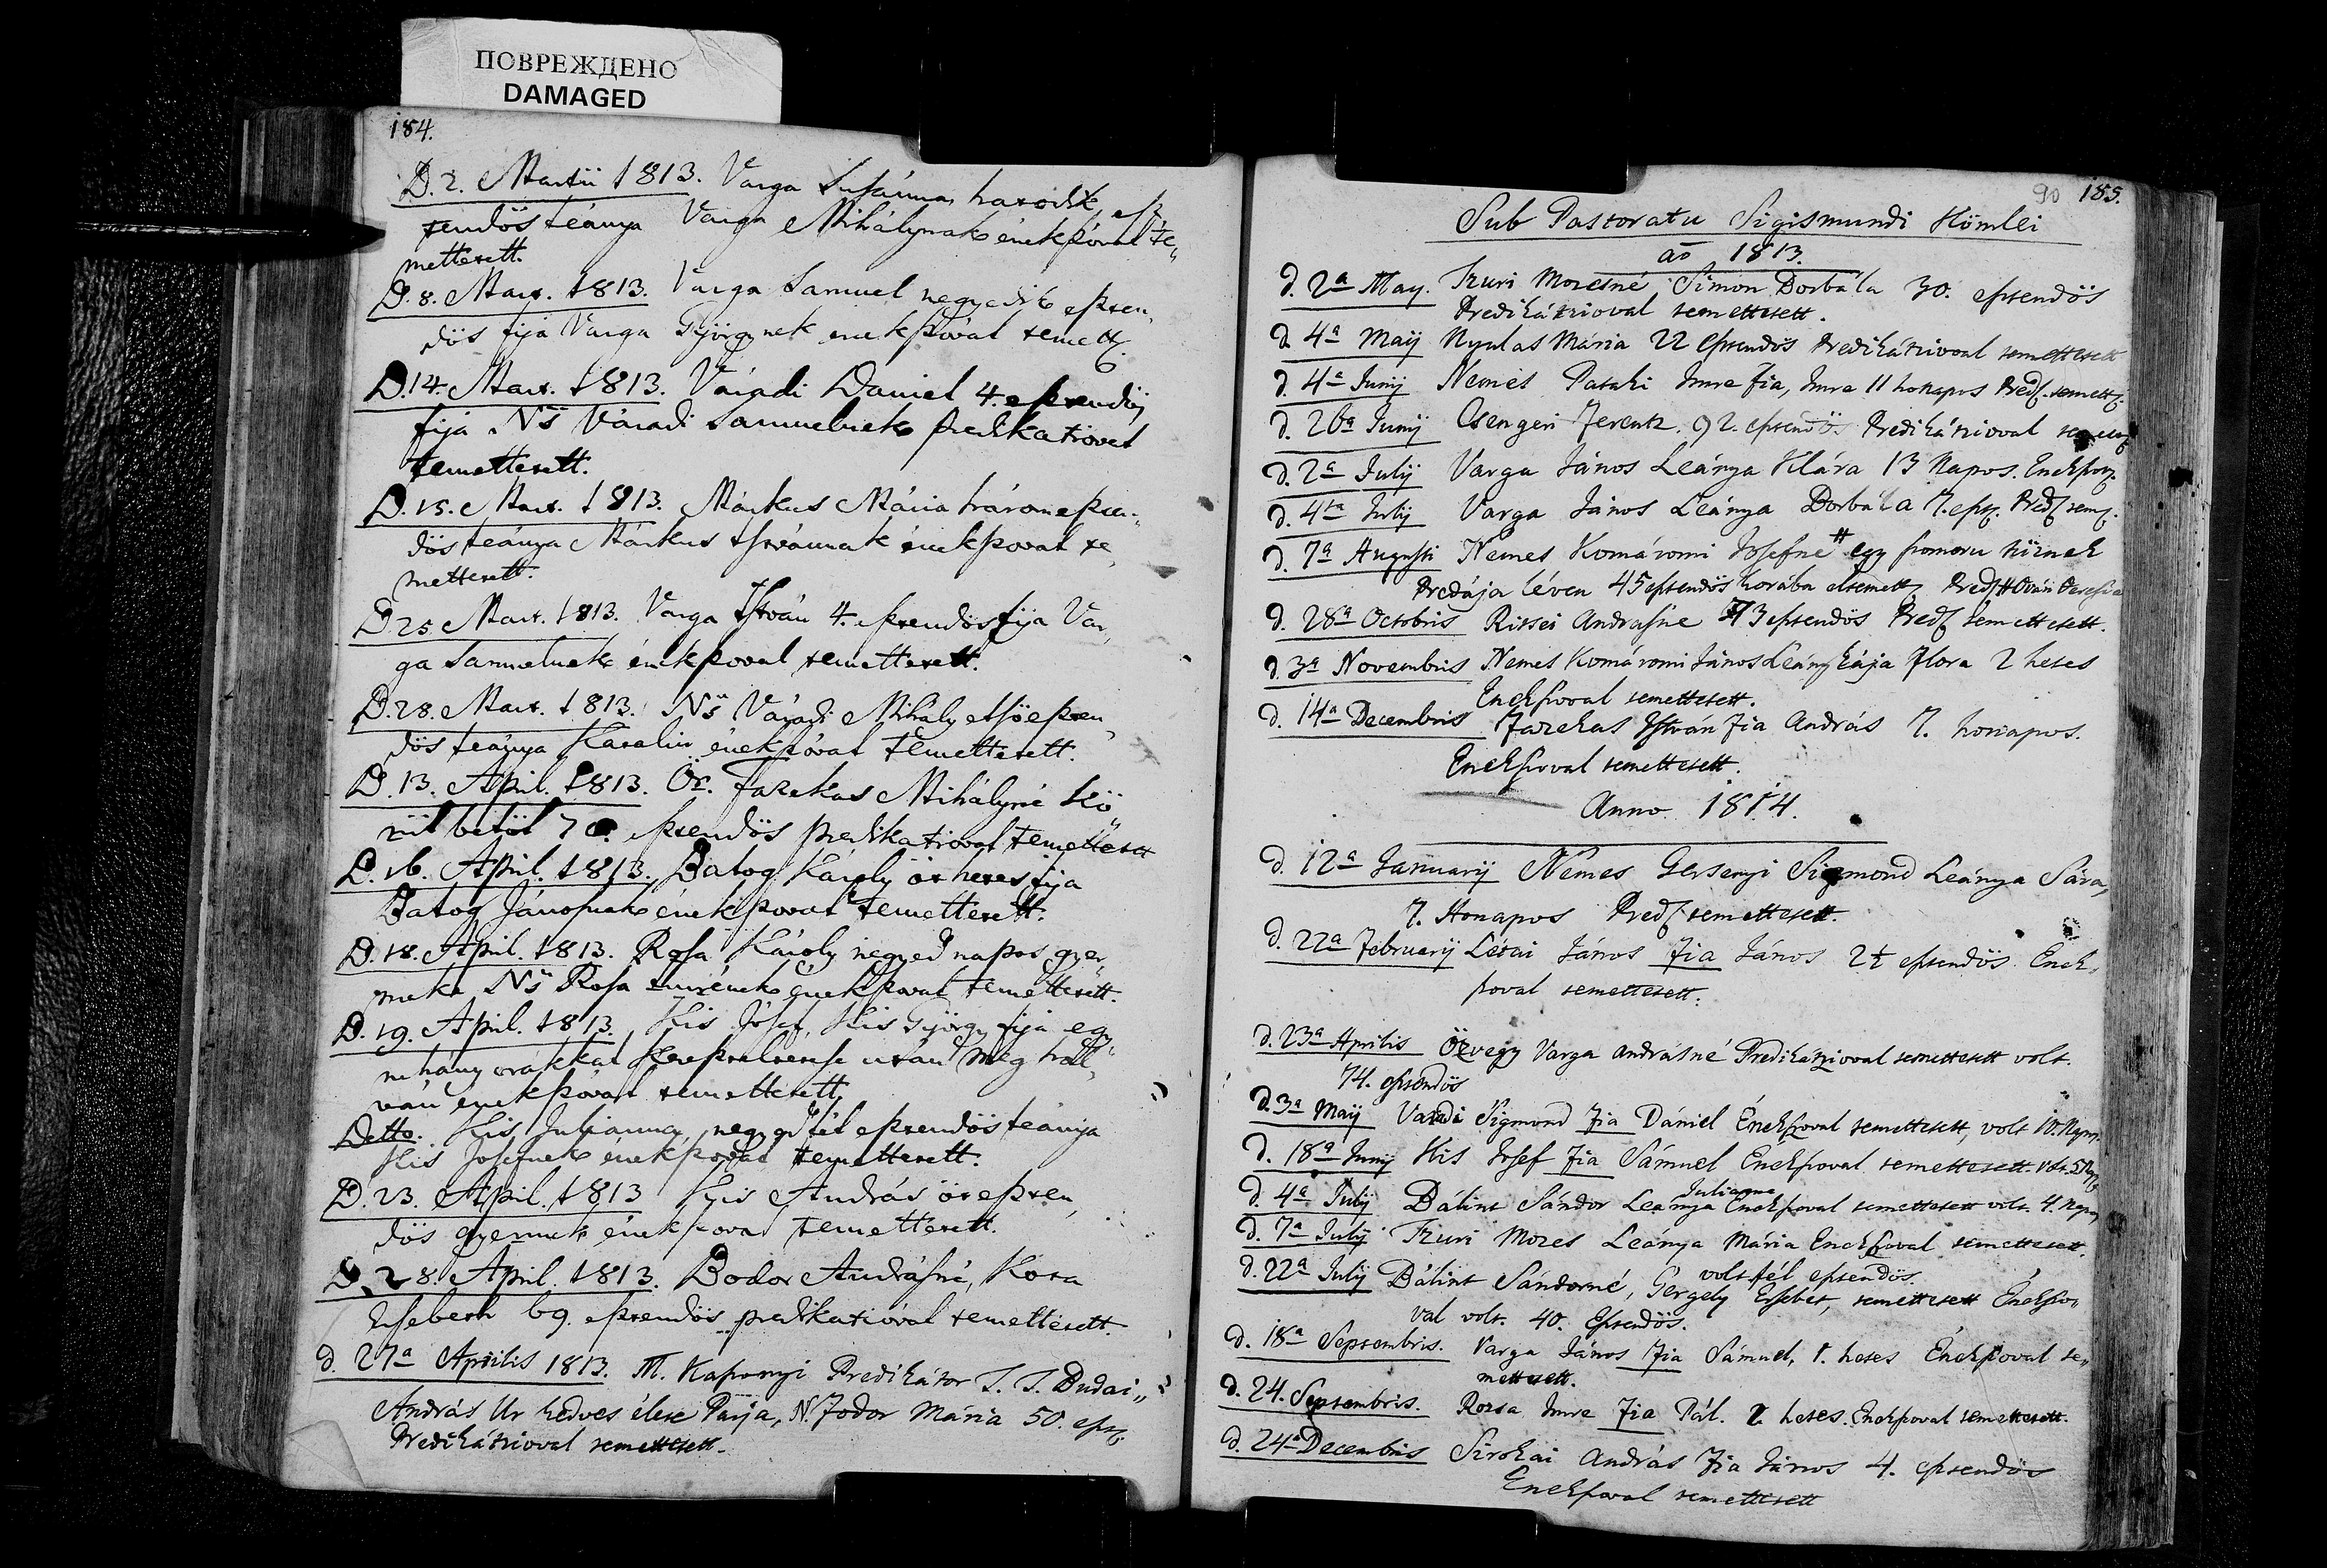 ПОВРЕЖДЕНО
DAMAGED
184.
D. 2. Martii 1813. Varga Susánna, harodik esz
tendös leánya Varga Mihálynak énekszóval te„
mettetett.
D. 8. Mart. 1813. Varga Samuel negyedik eszten„
dös fija Varga Györgynek enekszóval temett.
D. 14. Mart. 1813. Váradi Daniel 4. esztendös
fija Ns Váradi Samuelnek predikatzioval
temettetett.
D. 15. Mart. 1813. Márkus Mária három eszten„
dös leánya Márkus Istvánnak énekszoval te„
mettetett.
D. 25. Mart. 1813. Varga István 4. esztendös fija Var„
ga Samuelnek énekszoval temettetett.
D. 28. Mart. 1813. Ns Váradi Mihály elsö eszten„
dös leánya Karalin énekszóval temettetett.
D. 13. April. 1813. Öz. Fazekas Mihályné Kö„
rül belöl 70. esztendös predikatzioval temettetett
D. 16. April. 1813. Batog Károly öt hetes fija
Batog Jánosnak énekszoval temettetett.
D. 18. April. 1813. Rosa Károly negyed napos gyer„
meke Ns Rosa Imrének énekszoval temettetett.
D. 19. April. 1813. Kis Josef, Kis György fija egy„
nehany orákkal Keresztelense után meg hal„
ván enekszóval temettetett.
Detto. Kis Julianna, negyed fél esztendös leánya
Kis Josefnek énekszoval temettetett.
D. 23. April. 1813 Kis András öt eszten„
dös gyermek énekszoval temettetett.
D. 28. April. 1813. Bodor Andrásné, Kota
Ersebeth 69. esztendös predikatzióval temettetett.
d. 27a Aprilis 1813. M. Kaponyi Predikátor T. T. Budai„
András Ur kedves élete Párja, N. Fodor Mária 50. eszt.
Predikátzioval temettetett.
90 185.
Sub Pastoratu Sigismundi Kömlei
ao 1813.
d. 2a May. Izuri Mozesné Simon Borbála 30. esztendös
Predikátzioval temettetett.
d. 4a Maij Nyulas Mária 22 esztendös Predikátzioval temettetett
d. 4a Junij Nemes Pataki Imre fia, Imre 11 honapos Pred. temett.
d. 26a Junij Csengeri Ferentz. 92. esztendös Predikátzioval
d. 2a Julij Varga János Leánya Klára 13 Napos. Enekszov.
d. 4ta Julij Varga János Leánya Borbála 7. eszt. Pred. tem.
d. 7a Augusti Nemes Komáromi Josefne # egy szomoru hirnek
Predája léven 45 esztendös korába eltemett. Pred. #
d. 28a Octobris Ritsei Andrásne 73 esztendös Pred. temettetett.
d. 3a Novembris Nemes Komáromi János Leánykája Flora 2 hetes
Enekszoval temettetett.
d. 14a Decembris Fazekas István fia András 7. honapos.
Enekszoval temettetett.
Anno 1814.
d. 12a Januarij Nemes Gersenyi Sigmond Leánya Sára,
7. Honapos Pred. temettetett.
d. 22a Februarij Létai János fia János 2½ esztendös Enek„
szoval temettetett.
d. 23a Aprilis Özvegy Varga Andrásné Predikátzioval temettetett volt.
74. esztendös
d. 3a Maij Varadi Sigmond fia Dániel Énekszoval temettetett, volt 10. Napos.
d. 18a Junij Kis Josef fia Sámuel Enekszoval temettetett. volt. 5
Julianna
d. 4a Julij Bálint Sándor Leánya Enekszoval temettetett volt. 4. Napos
d. 7a Julij Izuri Mozes Leánya Mária Enekszoval temettetett.
volt fél esztendös.
d. 22a Julij Bálint Sándorné, Gergely Ersebet, temettetett Énekszo„
val volt. 40. Esztendös.
d. 18a Septembris. Varga János fia Sámuel, 1. hetes Énekszoval te„
mettetett.
d. 24. Septembris. Rozsa Imre fia Pál. 2 hetes. Enekszoval temettetett.
d. 24a Decembris Sirokai András fia János 4. esztendös
Enekszoval temettetett